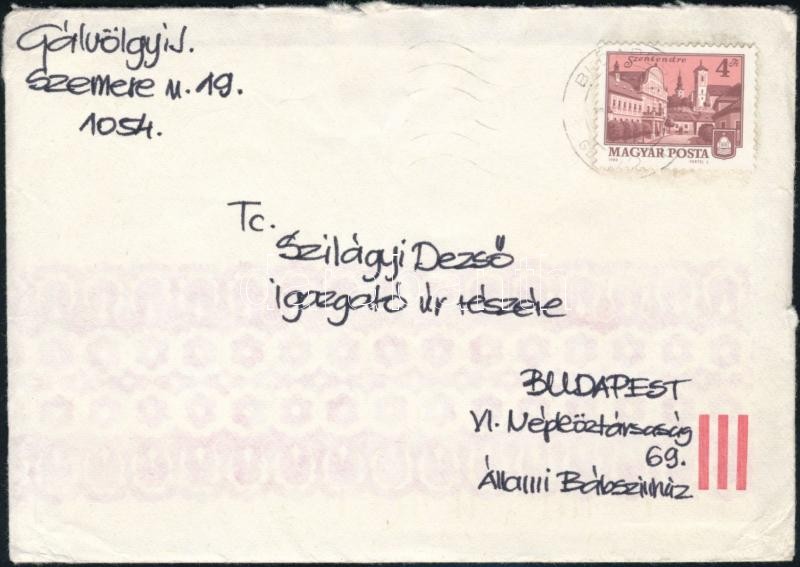 Gálvölgyi J.
Szemere u. 19.
1054.
Szentendre
4 Ft
MAGYAR POSTA
Tc.
Szilágyi Dezső
igazgató úr részére
BUDAPEST
VI. Népköztársaság
69.
Állami Bábszínház